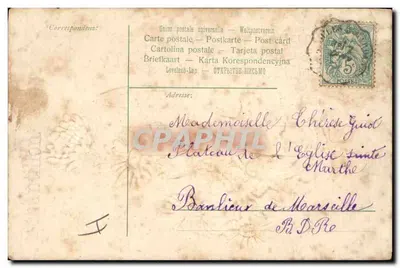 Correspondance
Union postale universelle — Weltpostverein
Carte postale — Postkarte — Post card
Cartolina postale — Tarjeta postal
Briefkaart — Karta Korespondencyjna
Levelező-Lap
Adresse:
5
Mademoiselle Thérèse Guiol
Plateau de l'Eglise sainte
Marthe
Banlieue de Marseille
B.D.R.
CPHPHIL